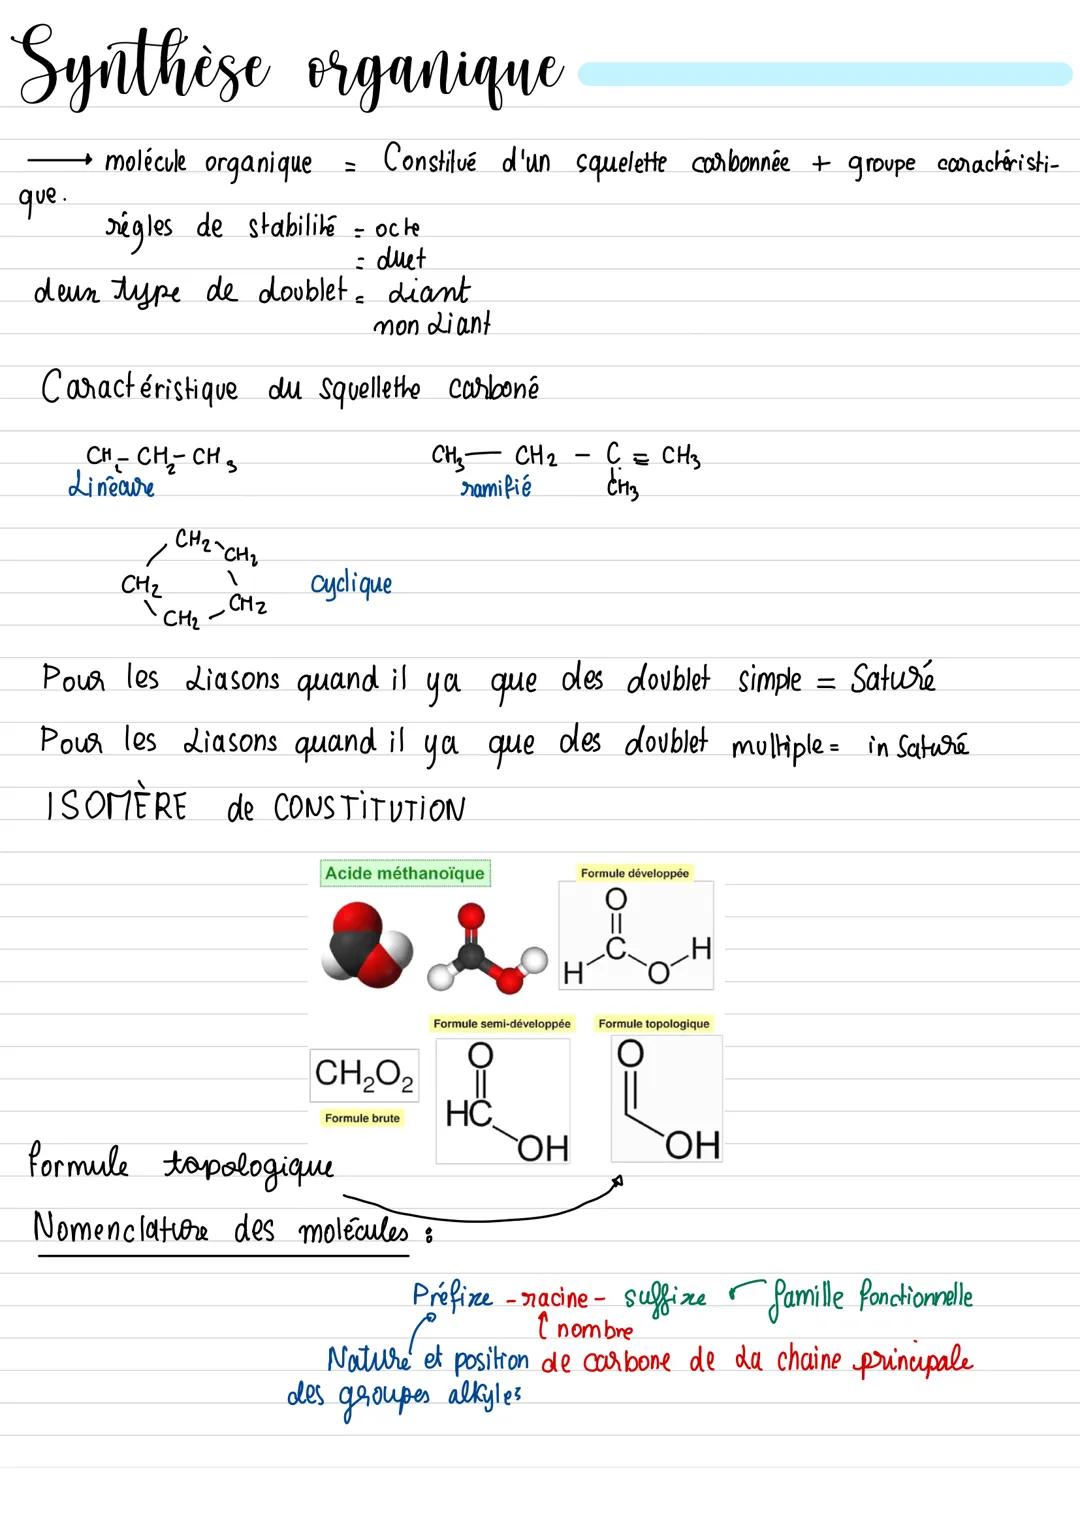 Synthèse organique
→ molécule organique = Constitué d'un squelette carbonnée + groupe caractéristi-
que.
régles de stabilité = octe
= duet
deux type de doublet = liant
non liant
Caractéristique du squellethe carboné
CH₂ - CH₂ - CH₃
Linéaire
CH₃ — CH₂ - C = CH₃
ramifié CH₃
CH₂ CH₂
CH₂ cyclique
CH₂ CH₂
Pour les liasons quand il ya que des doublet simple = Saturé
Pour les liasons quand il ya que des doublet multiple = in saturé
ISOMÈRE de CONSTITUTION
Acide méthanoïque
Formule développée
O
C
H O H
Formule semi-développée Formule topologique
O O
CH₂O₂
HC
Formule brute
OH OH
formule topologique
Nomenclature des molécules :
Préfixe - racine - suffixe famille fonctionnelle
nombre
Nature et position de carbone de la chaine principale
des groupes alkyles